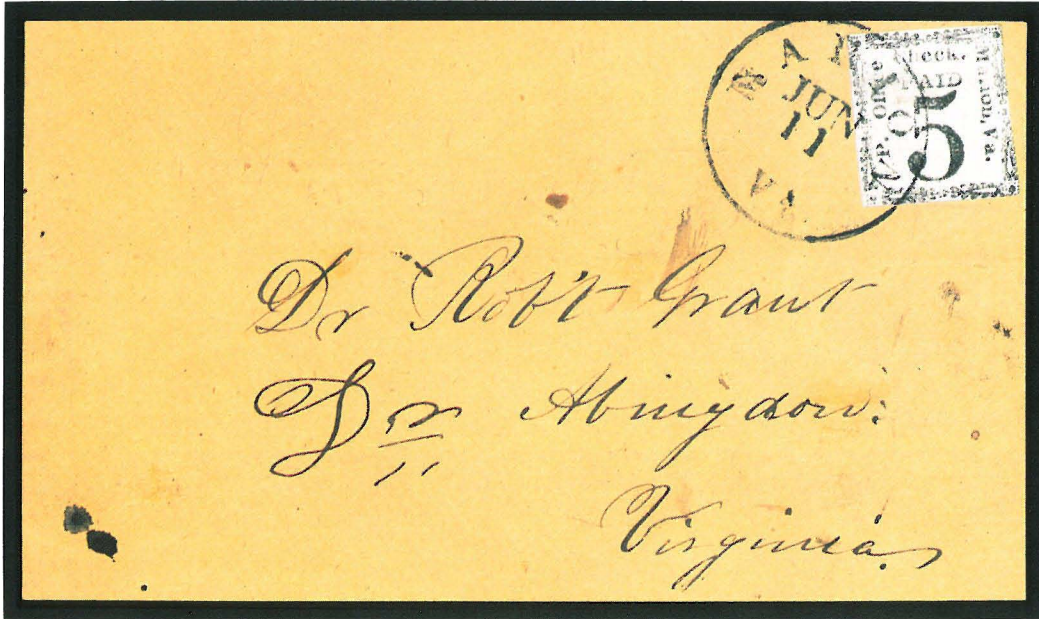 JUN
11
VA.
P. Office
Check.
PAID
5
Marion, Va.
Dr Rob't Grant
Abingdon.
Virginia.